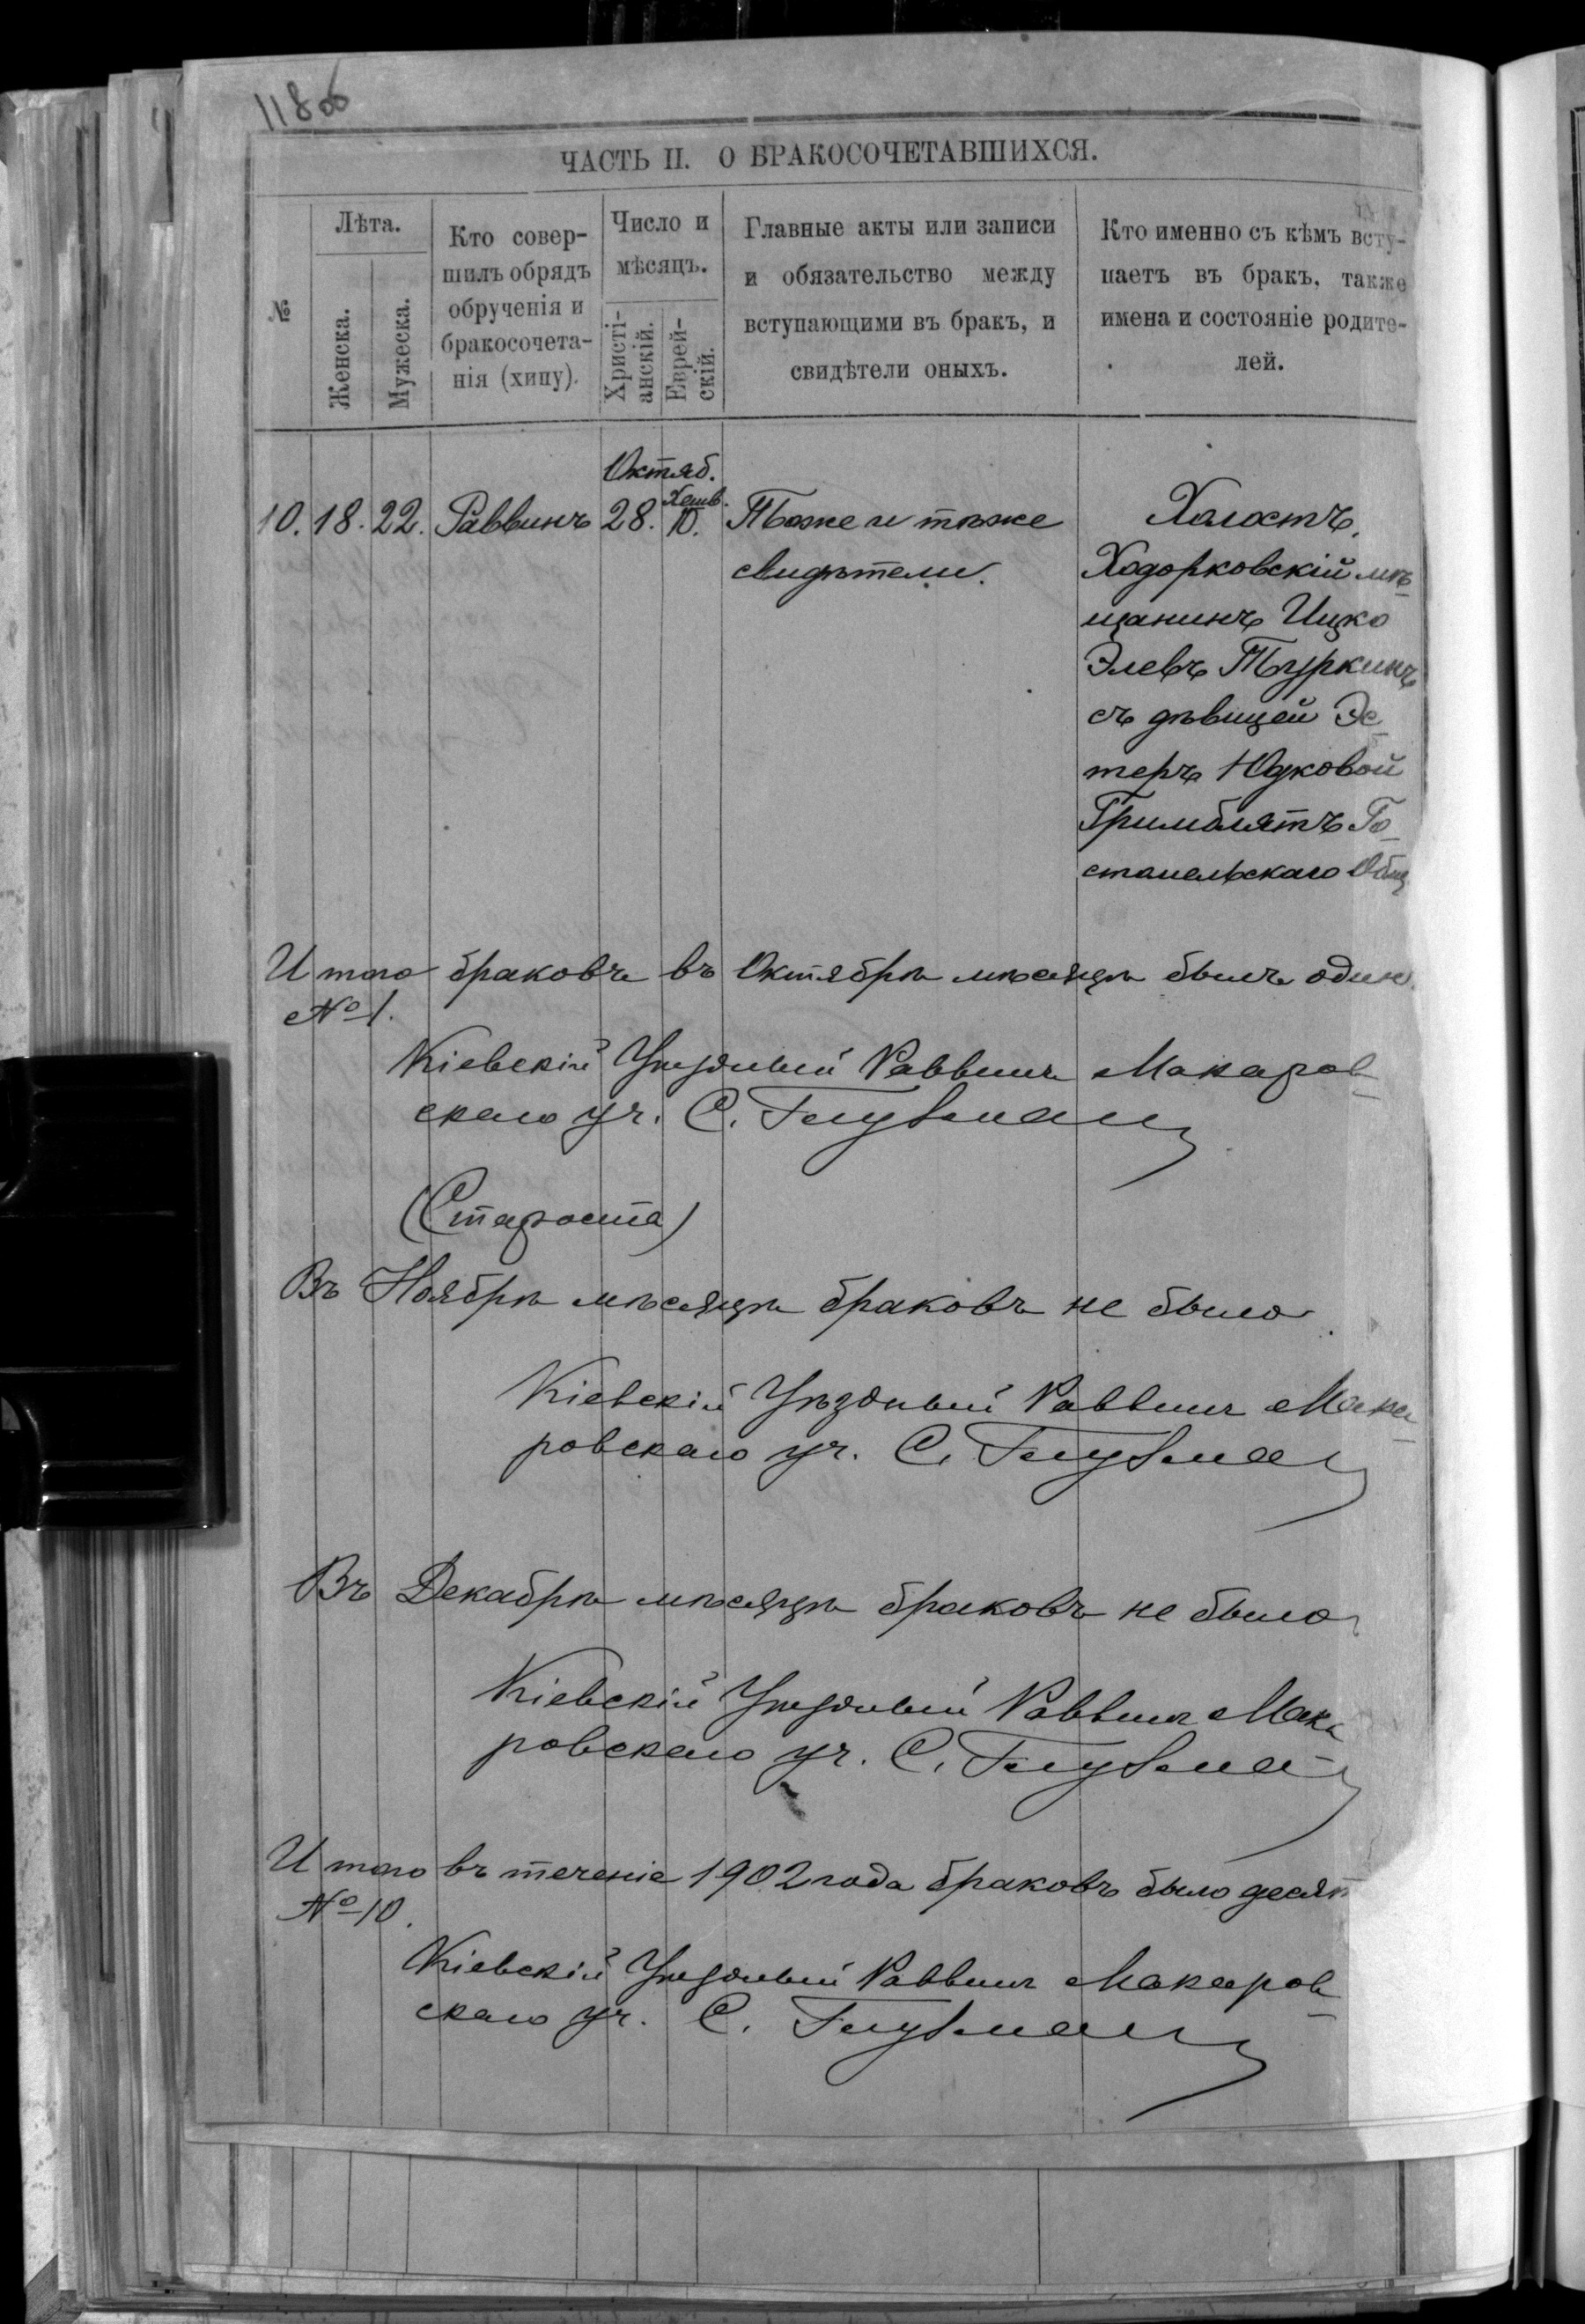 118 об
ЧАСТЬ II. О БРАКОСОЧЕТАВШИХСЯ.
№
Лѣта.
Женска.
Мужеска.
Кто совер-
шилъ обрядъ
обрученія и
бракосочета-
нія (хипу).
Число и
мѣсяцъ.
Христі-
анскій.
Еврей-
скій.
Главные акты или записи
и обязательство между
вступающими въ бракъ, и
свидѣтели оныхъ.
Кто именно съ кѣмъ всту-
паетъ въ бракъ, также
имена и состояніе родите-
лей.
Октяб.
Хешв.
10. 18. 22. Раввинъ 28. 10. Тѣже и тѣже
свидѣтели.
Холостъ,
Ходорковскій мѣ-
щанинъ Ицко
Элевъ Туркинъ
съ дѣвицей Эс-
теръ Юдковой
Гримблятъ Го-
стомельскаго Общ
Итого браковъ въ Октябрѣ мѣсяцѣ былъ один
№ 1.
Кіевскій Уѣздный Раввинъ Макаров-
скаго уч. С.
(Староста)
Въ Ноябрѣ мѣсяцѣ браковъ не было.
Кіевскій Уѣздный Раввинъ Мака-
ровскаго уч. С.
Въ Декабрѣ мѣсяцѣ браковъ не было
Кіевскій Уѣздный Раввинъ Мака-
ровскаго уч. С.
Итого въ теченіе 1902 года браковъ было десят
№ 10.
Кіевскій Уѣздный Раввинъ Макаров-
скаго уч. С.